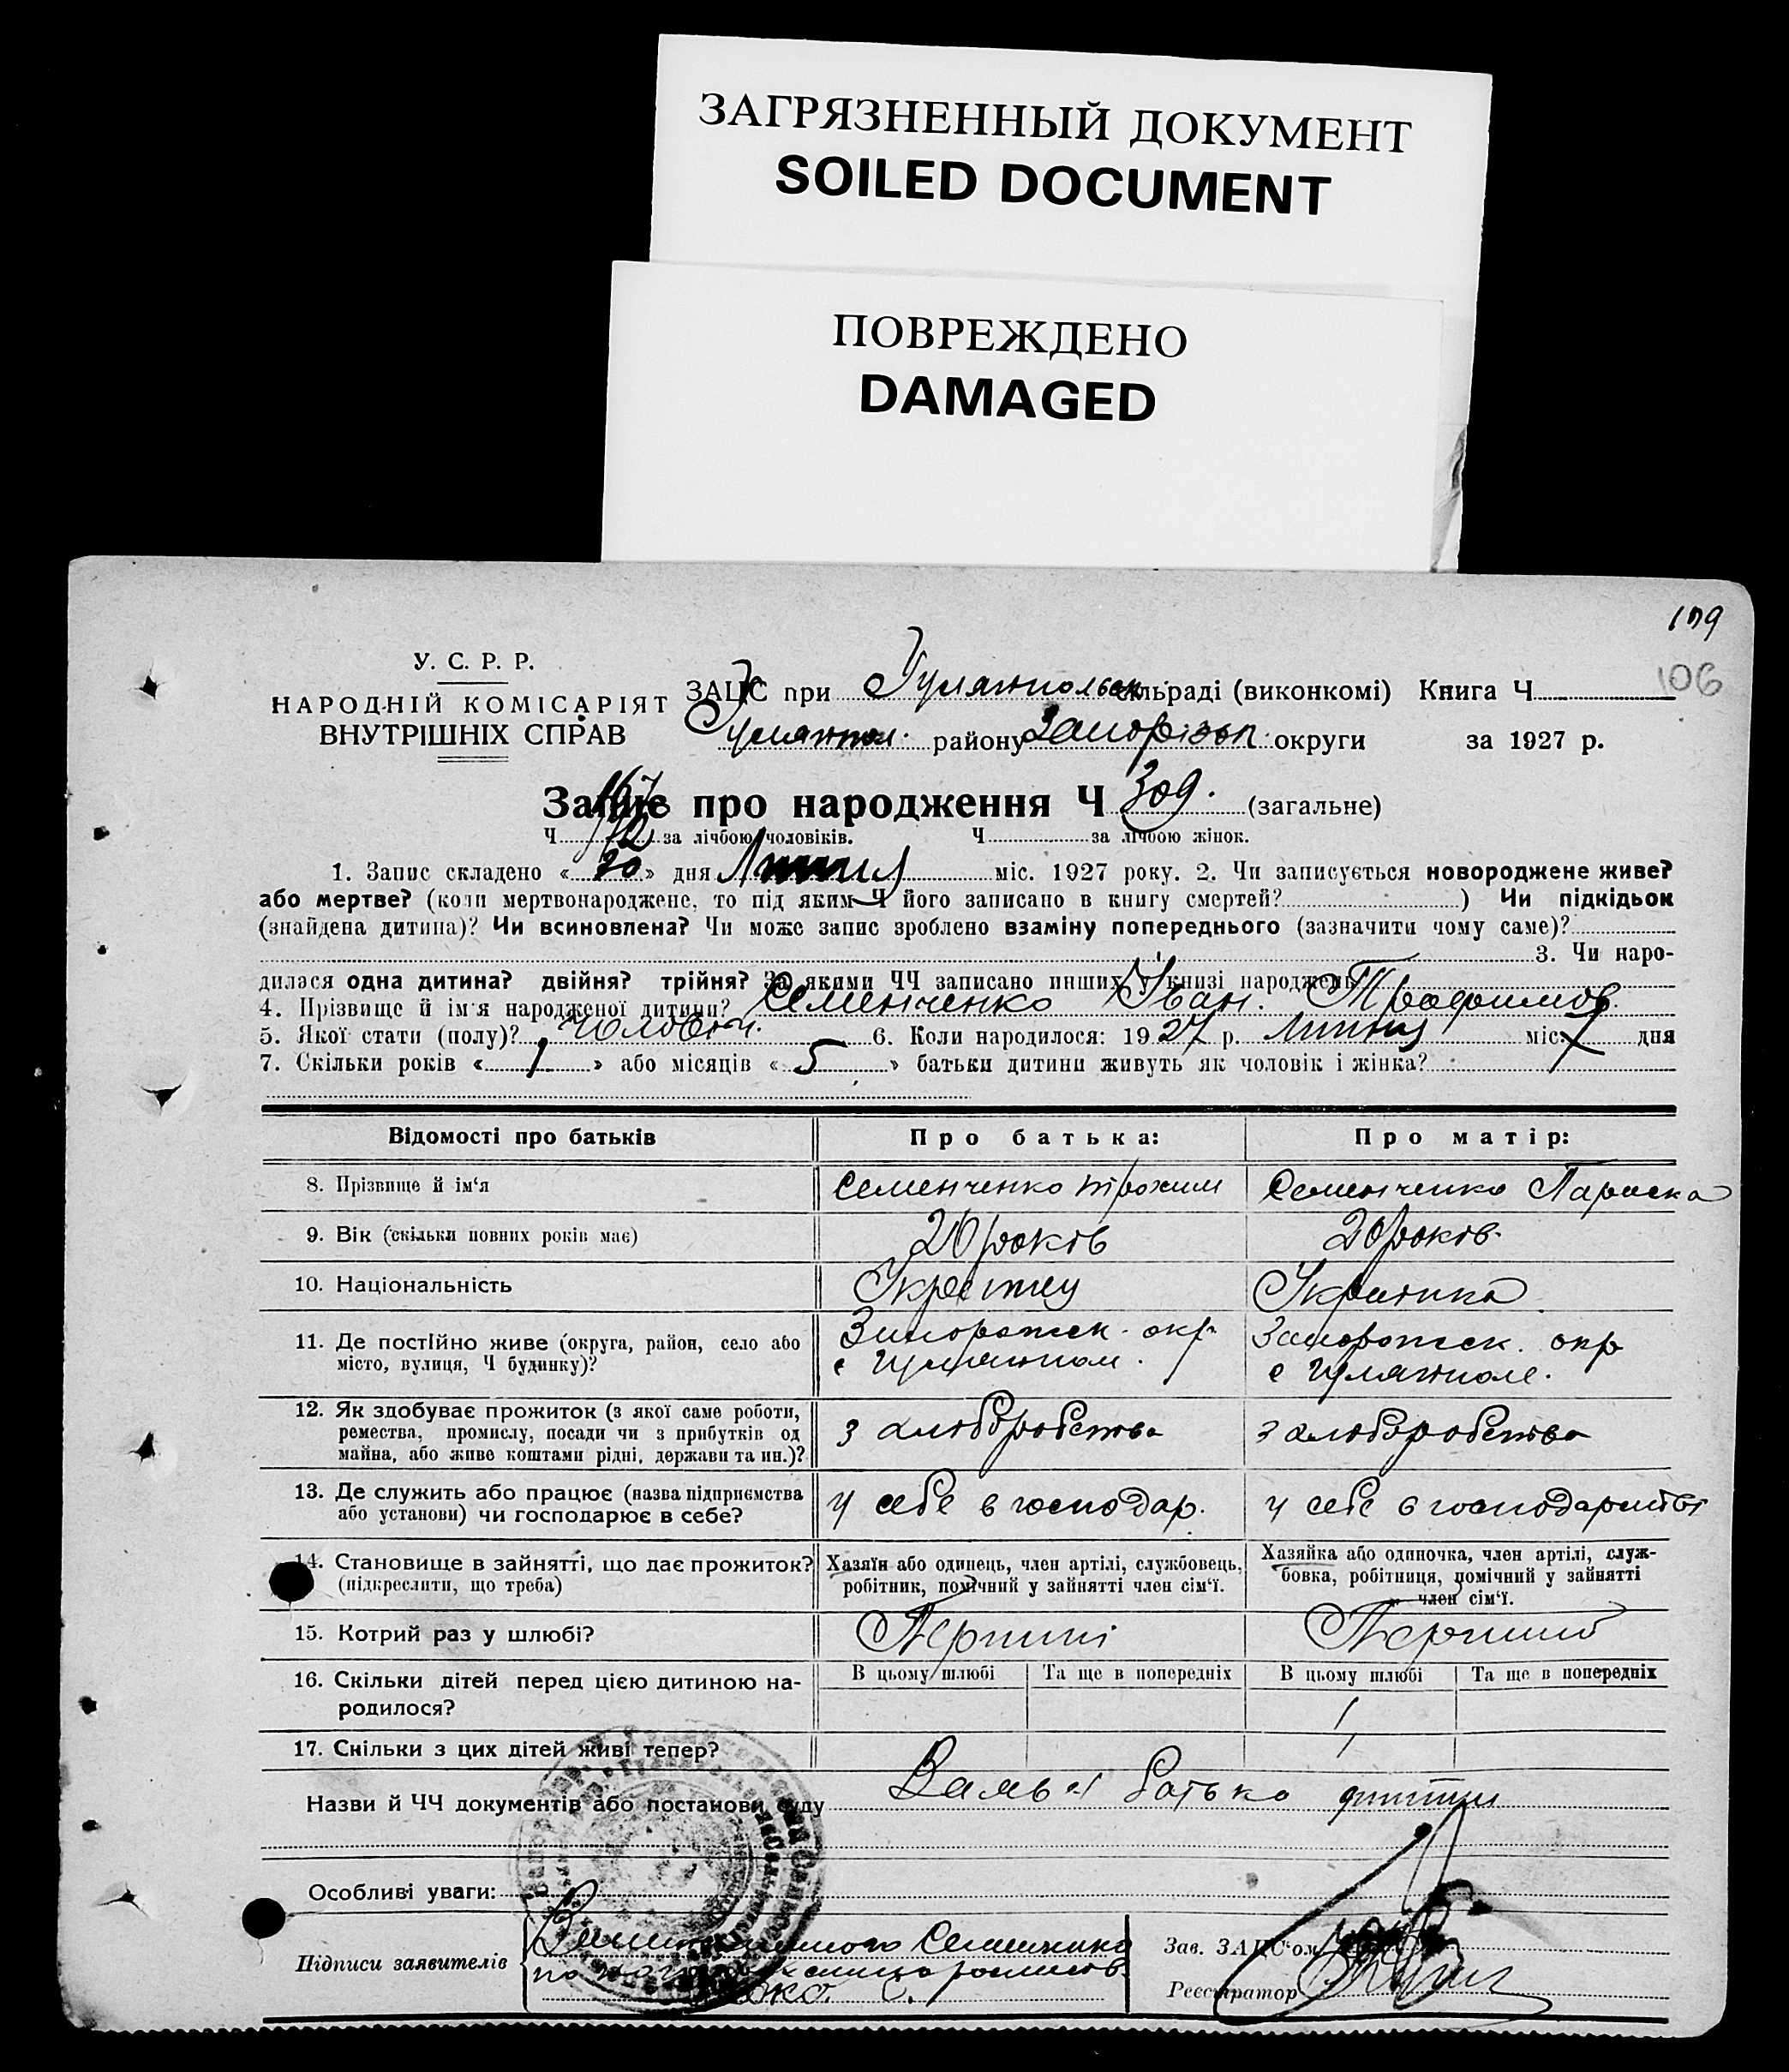 ЗАГРЯЗНЕННЫЙ ДОКУМЕНТ
SOILED DOCUMENT
ПОВРЕЖДЕНО
DAMAGED
109
106
У. С. Р. Р.
НАРОДНІЙ КОМІСАРІЯТ
ВНУТРІШНІХ СПРАВ
ЗАЦС при Гуляйпольськ. сільраді (виконкомі) Книга Ч
Гуляйпол. району Запорізьк. округи за 1927 р.
Запис про народження Ч 309. (загальне)
Ч за лічбою чоловіків. Ч за лічбою жінок.
1. Запис складено «20» дня Липня міс. 1927 року. 2. Чи записується новороджене живе?
або мертве? (коли мертвонароджене, то під яким Ч його записано в книгу смертей? ) Чи підкідьок
(знайдена дитина)? Чи всиновлена? Чи може запис зроблено взаміну попереднього (зазначити чому саме)?
3. Чи наро-
дилася одна дитина? двійня? трійня? За якими ЧЧ записано инших у книзі народжень
4. Прізвище й ім'я народженої дитини? Семенченко Іван. Трофимов.
5. Якої стати (полу)? Чоловіч. 6. Коли народилося: 1927 р. Липня міс. 7 дня
7. Скільки років «1» або місяців «5» батьки дитини живуть як чоловік і жінка?
Відомості про батьків Про батька: Про матір:
8. Прізвище й ім'я Семенченко Трохим Семенченко Параска
9. Вік (скільки повних років має) 20 років 20 років
10. Національність Українец Українка
11. Де постійно живе (округа, район, село або Запорожск. окр. Запорожск. окр
місто, вулиця, Ч будинку)? с Гуляйпол. с Гуляйполе.
12. Як здобуває прожиток (з якої саме роботи,
ремества, промислу, посади чи з прибутків од з хліборобства з хліборобства
майна, або живе коштами рідні, держави та ин.)?
13. Де служить або працює (назва підприємства у себе в господар. у себе в господарстві
або установи) чи господарює в себе?
14. Становище в зайнятті, що дає прожиток? Хазяїн або одинець, член артілі, службовець, Хазяйка або одиночка, член артілі, служ-
(підкреслити, що треба) робітник, помічний у зайнятті член сім'ї. бовка, робітниця, помічний у зайнятті
член сім'ї.
15. Котрий раз у шлюбі? Перший Перший
16. Скільки дітей перед цією дитиною на- В цьому шлюбі Та ще в попередніх В цьому шлюбі Та ще в попередніх
родилося? 1
17. Скільки з цих дітей живі тепер? 1
Назви й ЧЧ документів або постанови суду батько
Особливі уваги:
Підписи заявителів Зав. ЗАЦС'ом
Реєстратор